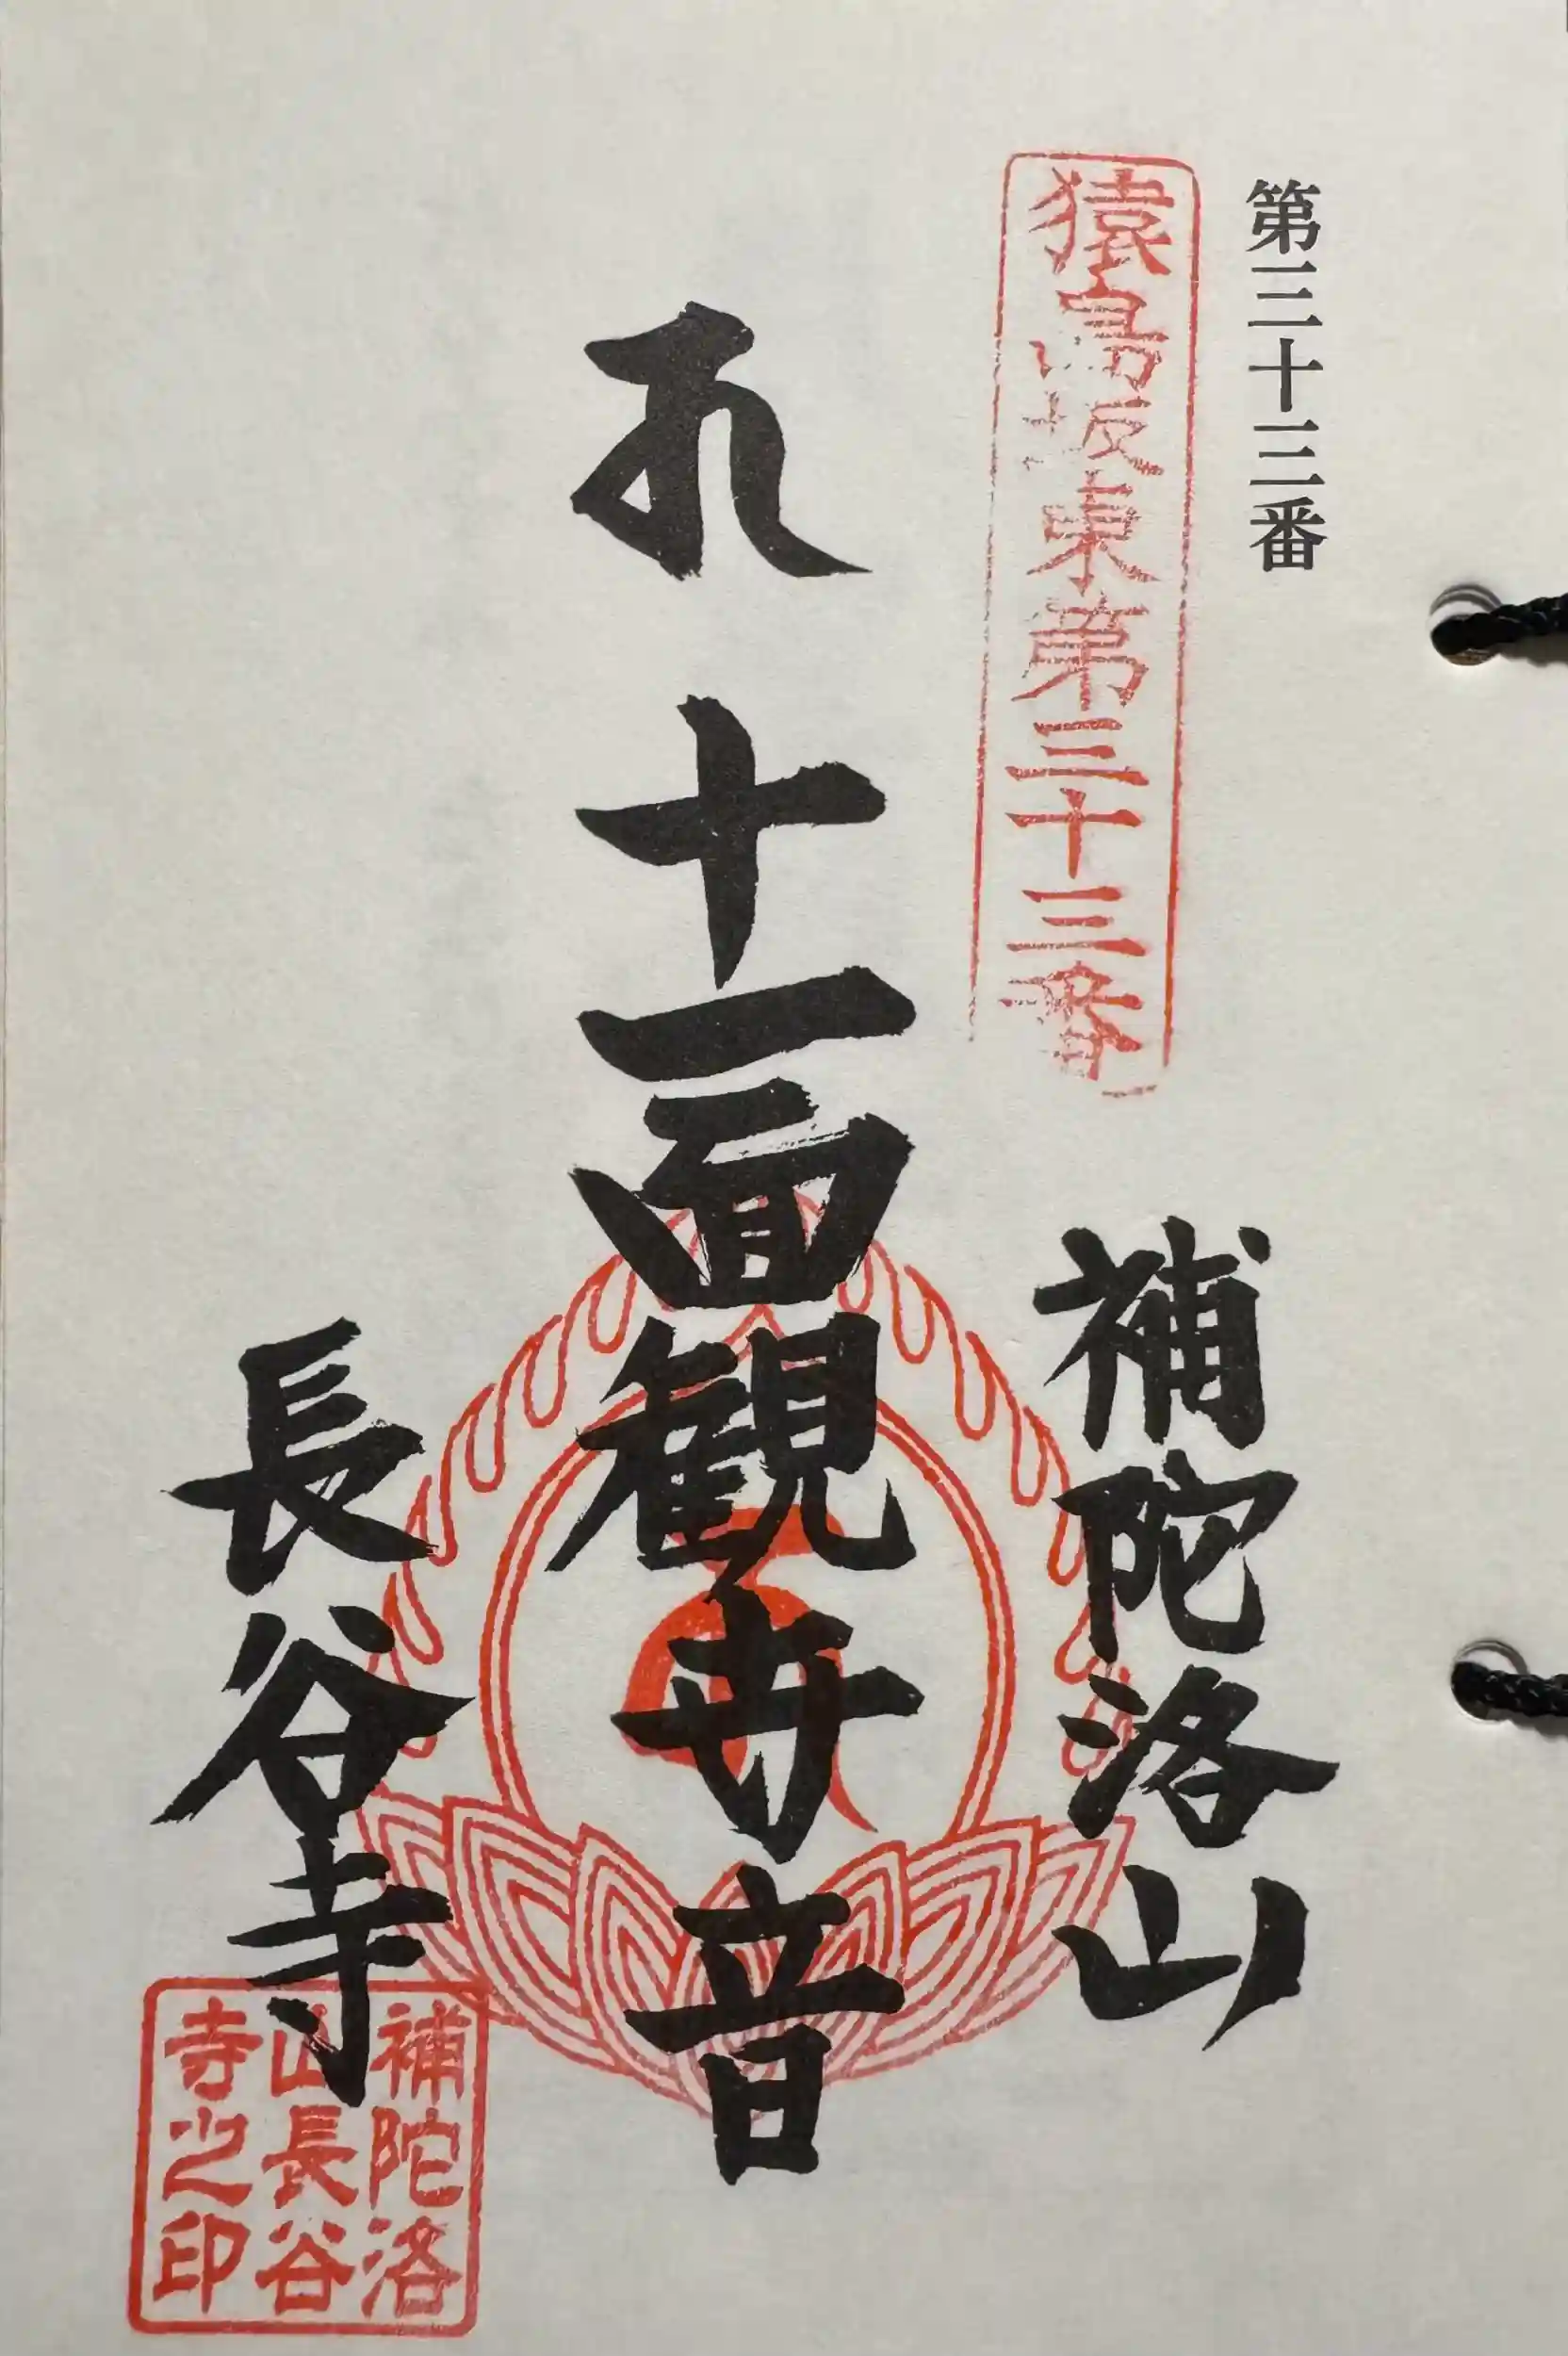 第三十三番
猿島坂東第三十三番
補陀洛山
十一面観世音
長谷寺
補陀洛
山長谷
寺之印